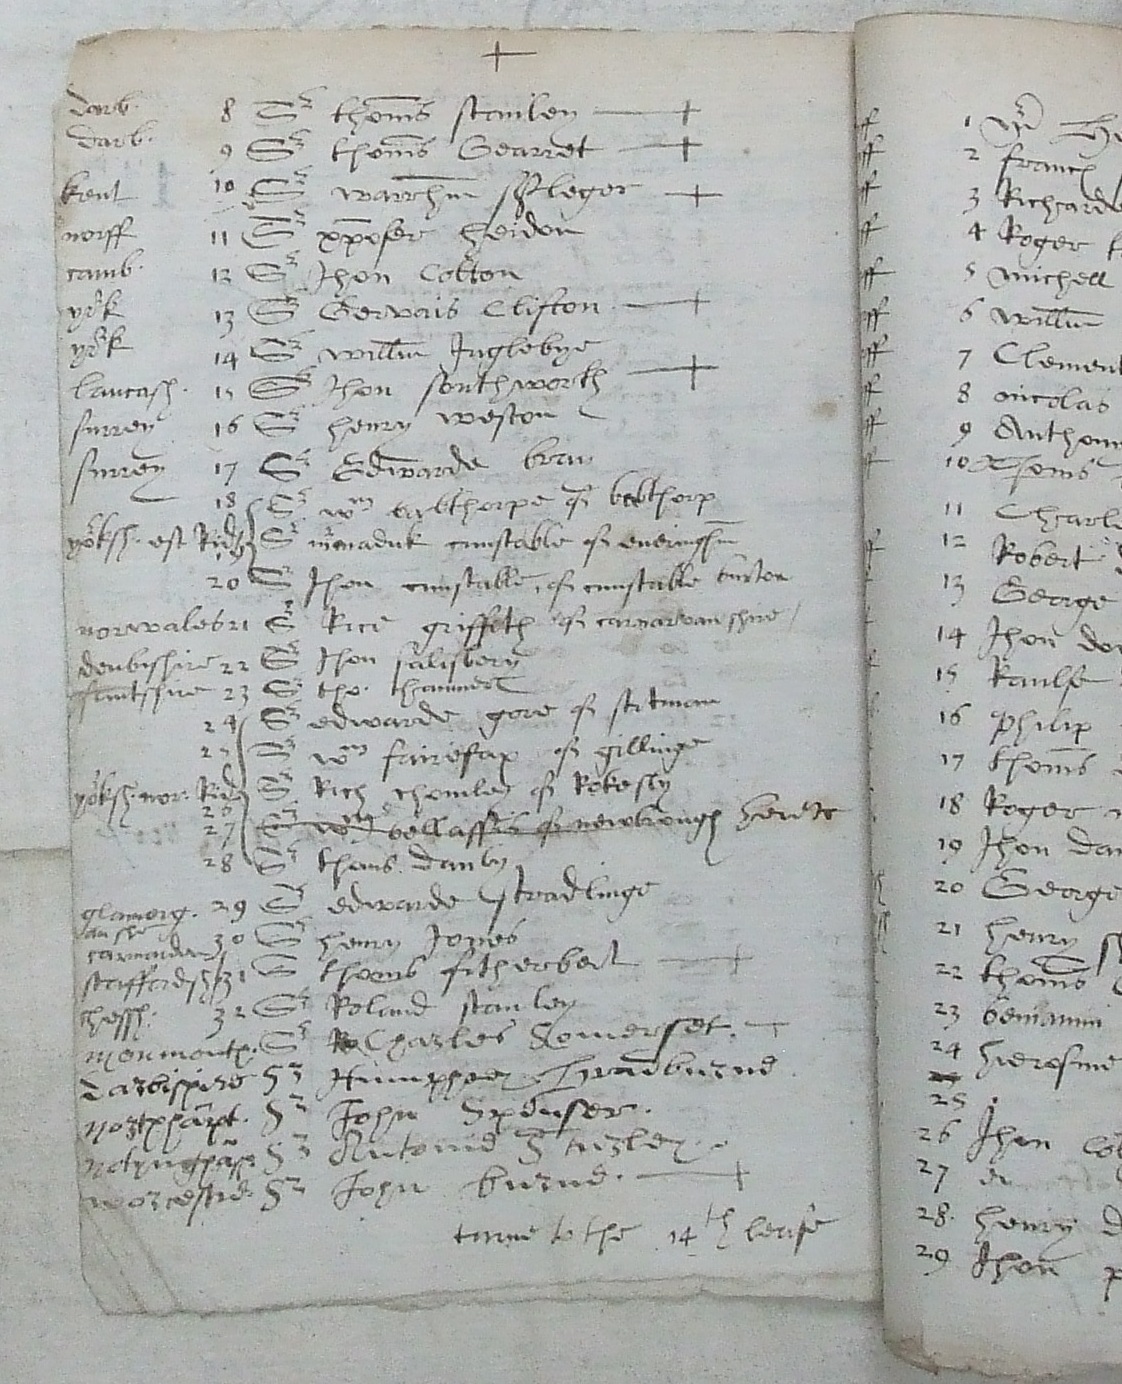 darb. 8 Sr thoms stanley
darb. 9 Sr thoms Gearret
kent 10 Sr warrhm st leger
norff 11 Sr xpofer heidon
camb. 12 Sr Jhon Cotton
york 13 Sr Gervais Clifton
york 14 Sr willm Inglebye
lancash. 15 Sr Jhon southworth
surrey 16 Sr henry weston
surrey 17 Sr Edwarde bray
18 Sr wm babthorpe of babthorp
yorksh. est Rid. Sr marmaduk cunstable of everinghm
20 Sr Jhon cunstable of cunstable burton
norwales 21 Sr Rice griffith of carnarvan shire
denbishire 22 Sr Jhon salisbery
flintshire 23 Sr tho. Hanmer
24 Sr edwarde gore of
25 Sr wm fairefax of gillinge
yorksh. nor. Rid. 26 Sr Rich chomley of Rokesby
27 Sr wm bellassis of newbrough
28 Sr thoms danby
glamorg. an shr 29 Sr edwarde stradlinge
carmarden 30 Sr henry Jones
staffordsh 31 Sr thoms fitherbert
chessh. 32 Sr Roland stanley
monmouth. Sr Charles Somerset.
darbishire Sr Humphrey Bradburne
northampt. Sr John Spenser.
notyngham Sr Antonie Sturley.
worcestre Sr John burne.
turne to the 14th leafe
1 Mr
2 franc
3 Richarde
4 Roger
5 michell
6 willm
7 Clement
8 nicolas
9 Anthony
10 Thoms
11 Charl
12 Robert
13 George
14 Jhon
15 Raulfe
16 Philip
17 thoms
18 Roger
19 Jhon
20 George
21 henry
22 thoms
23 beniamin
24
25
26 Jhon
27
28. henry
29 Jhon